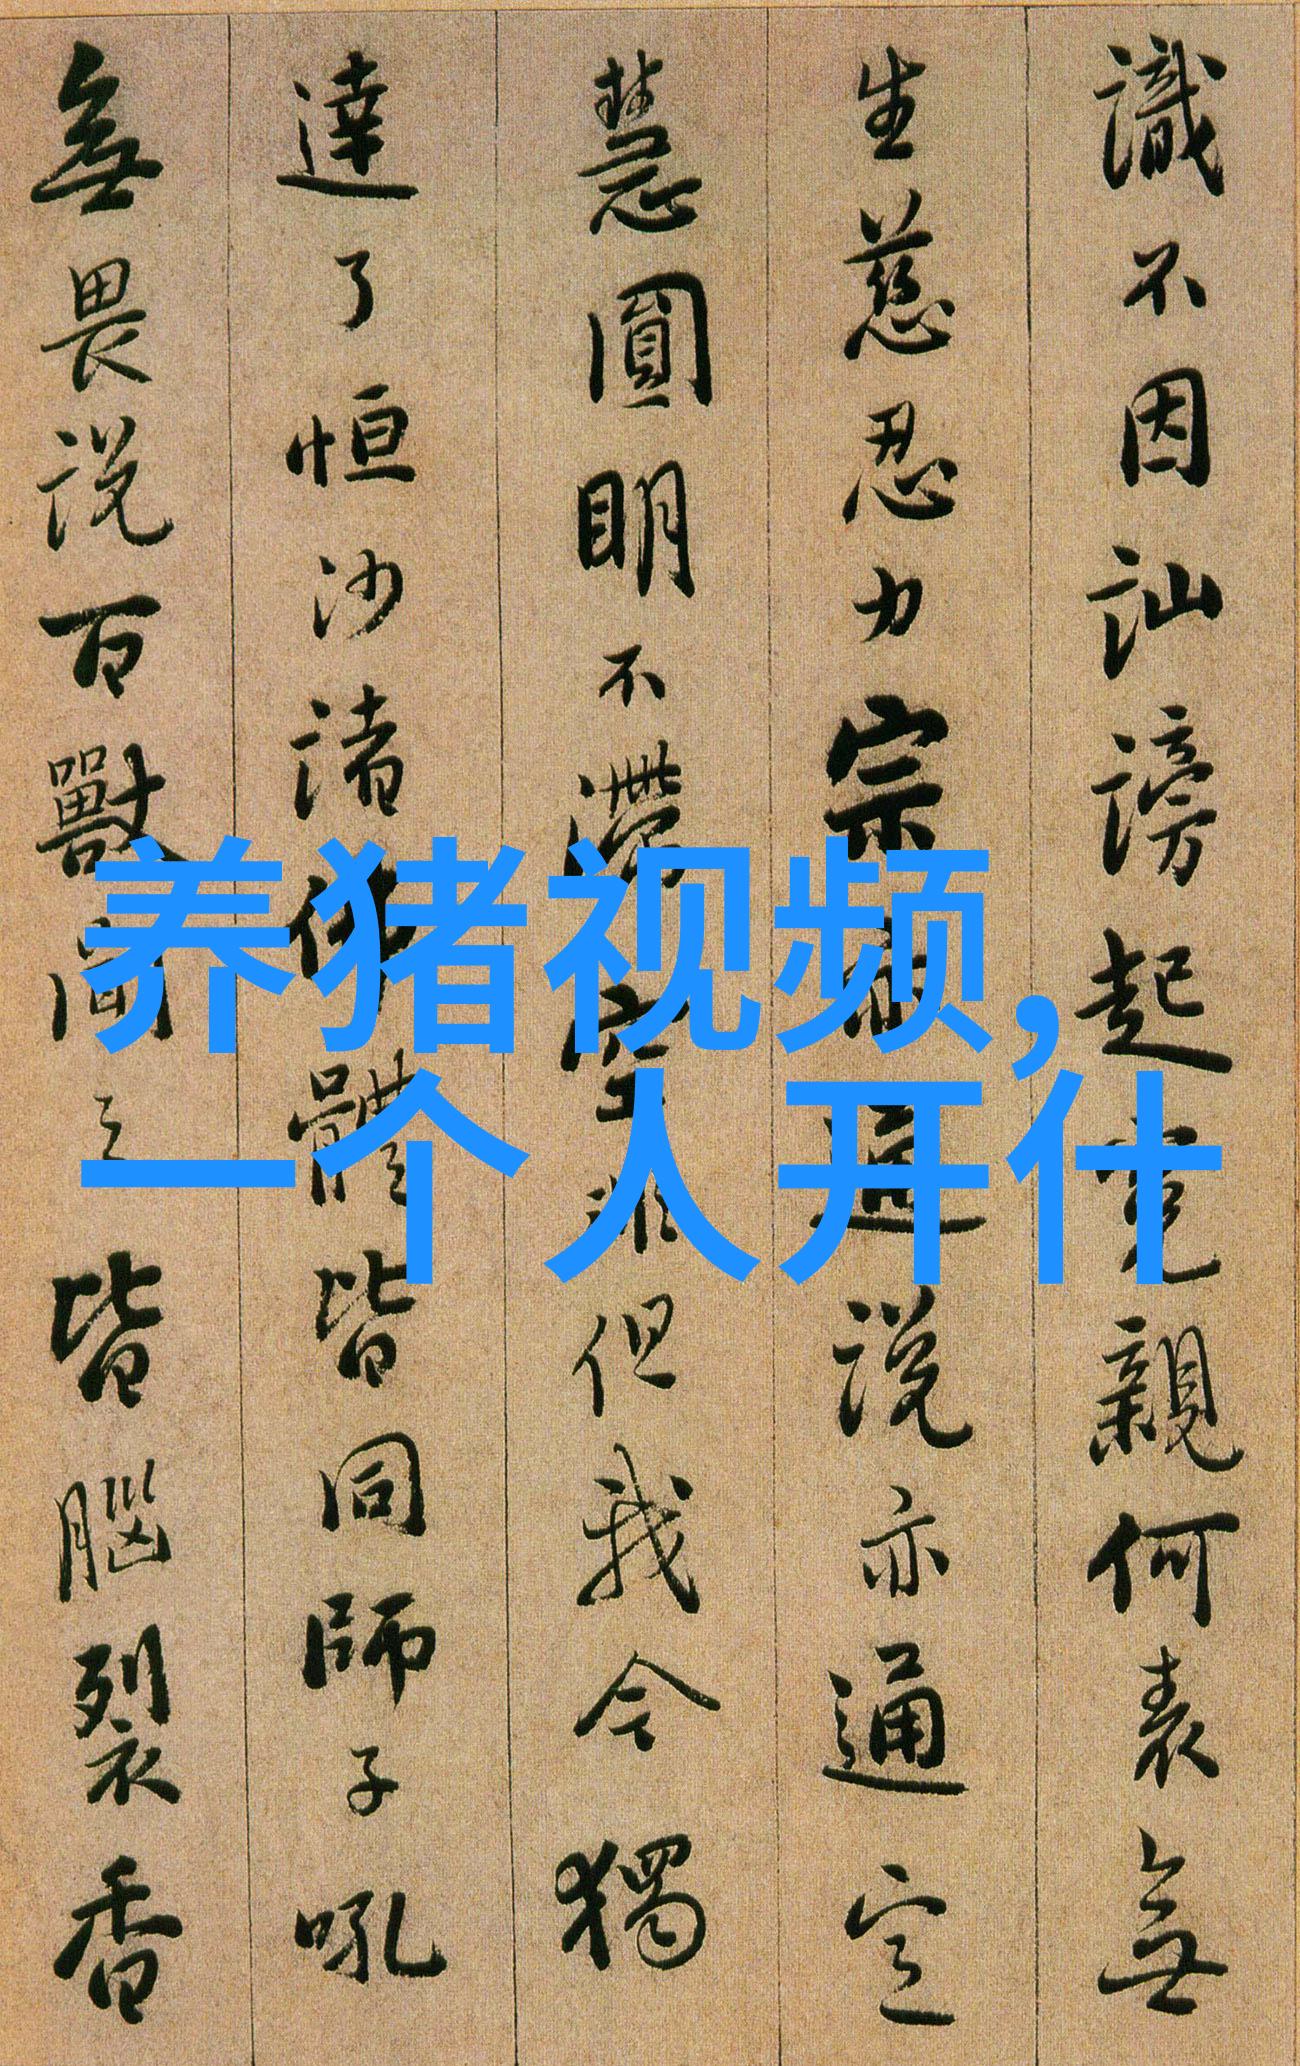 識不因訕謗起冤親何表無
生慈忍力宗亦通說亦通定
慧圓明不滯空非但我今獨
達了恒沙諸佛體皆同師子吼
無畏說百獸聞之皆腦裂香
养猪视频,
一个人开什